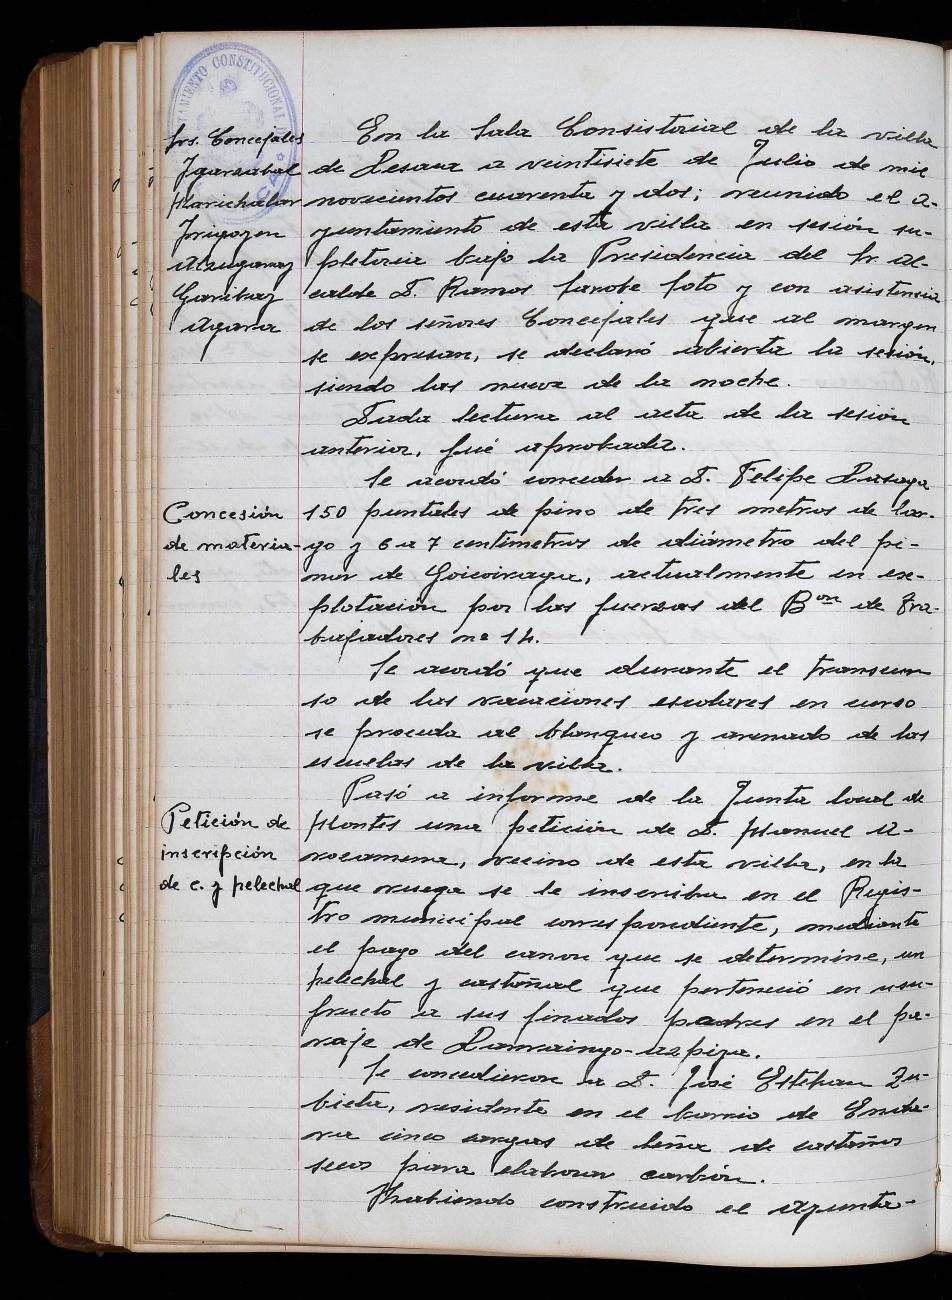 AYUNTAMIENTO CONSTITUCIONAL
Srs. Concejales
Igarzabal
Marichalar
Irigoyen
Alzugaray
Garibay
Agara
Concesión
de materia-
les
Petición de
inscripción
de c. y pelechal
En la Sala Consistorial de la villa
de Lesaca a veintisiete de Julio de mil
novecientos cuarenta y dos; reunido el A-
yuntamiento de esta villa en sesión su-
pletoria bajo la Presidencia del Sr. Al-
calde D. Ramos Sarobe Soto y con asistencia
de los señores Concejales que al margen
se expresan, se declaró abierta la sesión,
siendo las nueve de la noche.
Dada lectura al acta de la sesión
anterior, fué aprobada.
Se acordó conceder a D. Felipe Lasaga
150 puntales de pino de tres metros de lar-
go y 6 a 7 centímetros de diámetro del pi-
nar de Goicoiraga, actualmente en ex-
plotación por las fuerzas del Bon de Tra-
bajadores nº 14.
Se acordó que durante el transcur
so de las vacaciones escolares en curso
se proceda al blanqueo y arenado de las
escuelas de la villa.
Pasó a informe de la Junta local de
Montes una petición de D. Manuel A-
rocamena, vecino de esta villa, en la
que ruega se le inscriba en el Regis-
tro municipal correspondiente, mediante
el pago del canon que se determine, un
pelechal y castañal que perteneció en usu-
fructo a sus finados padres en el pa-
raje de Larraingo-azpiga.
Se concedieron a D. José Esteban Zu-
bieta, residente en el barrio de Enda-
ra cinco cargas de leña de castaños
secos para elaborar carbón.
Habiendo construido el Ayunta-